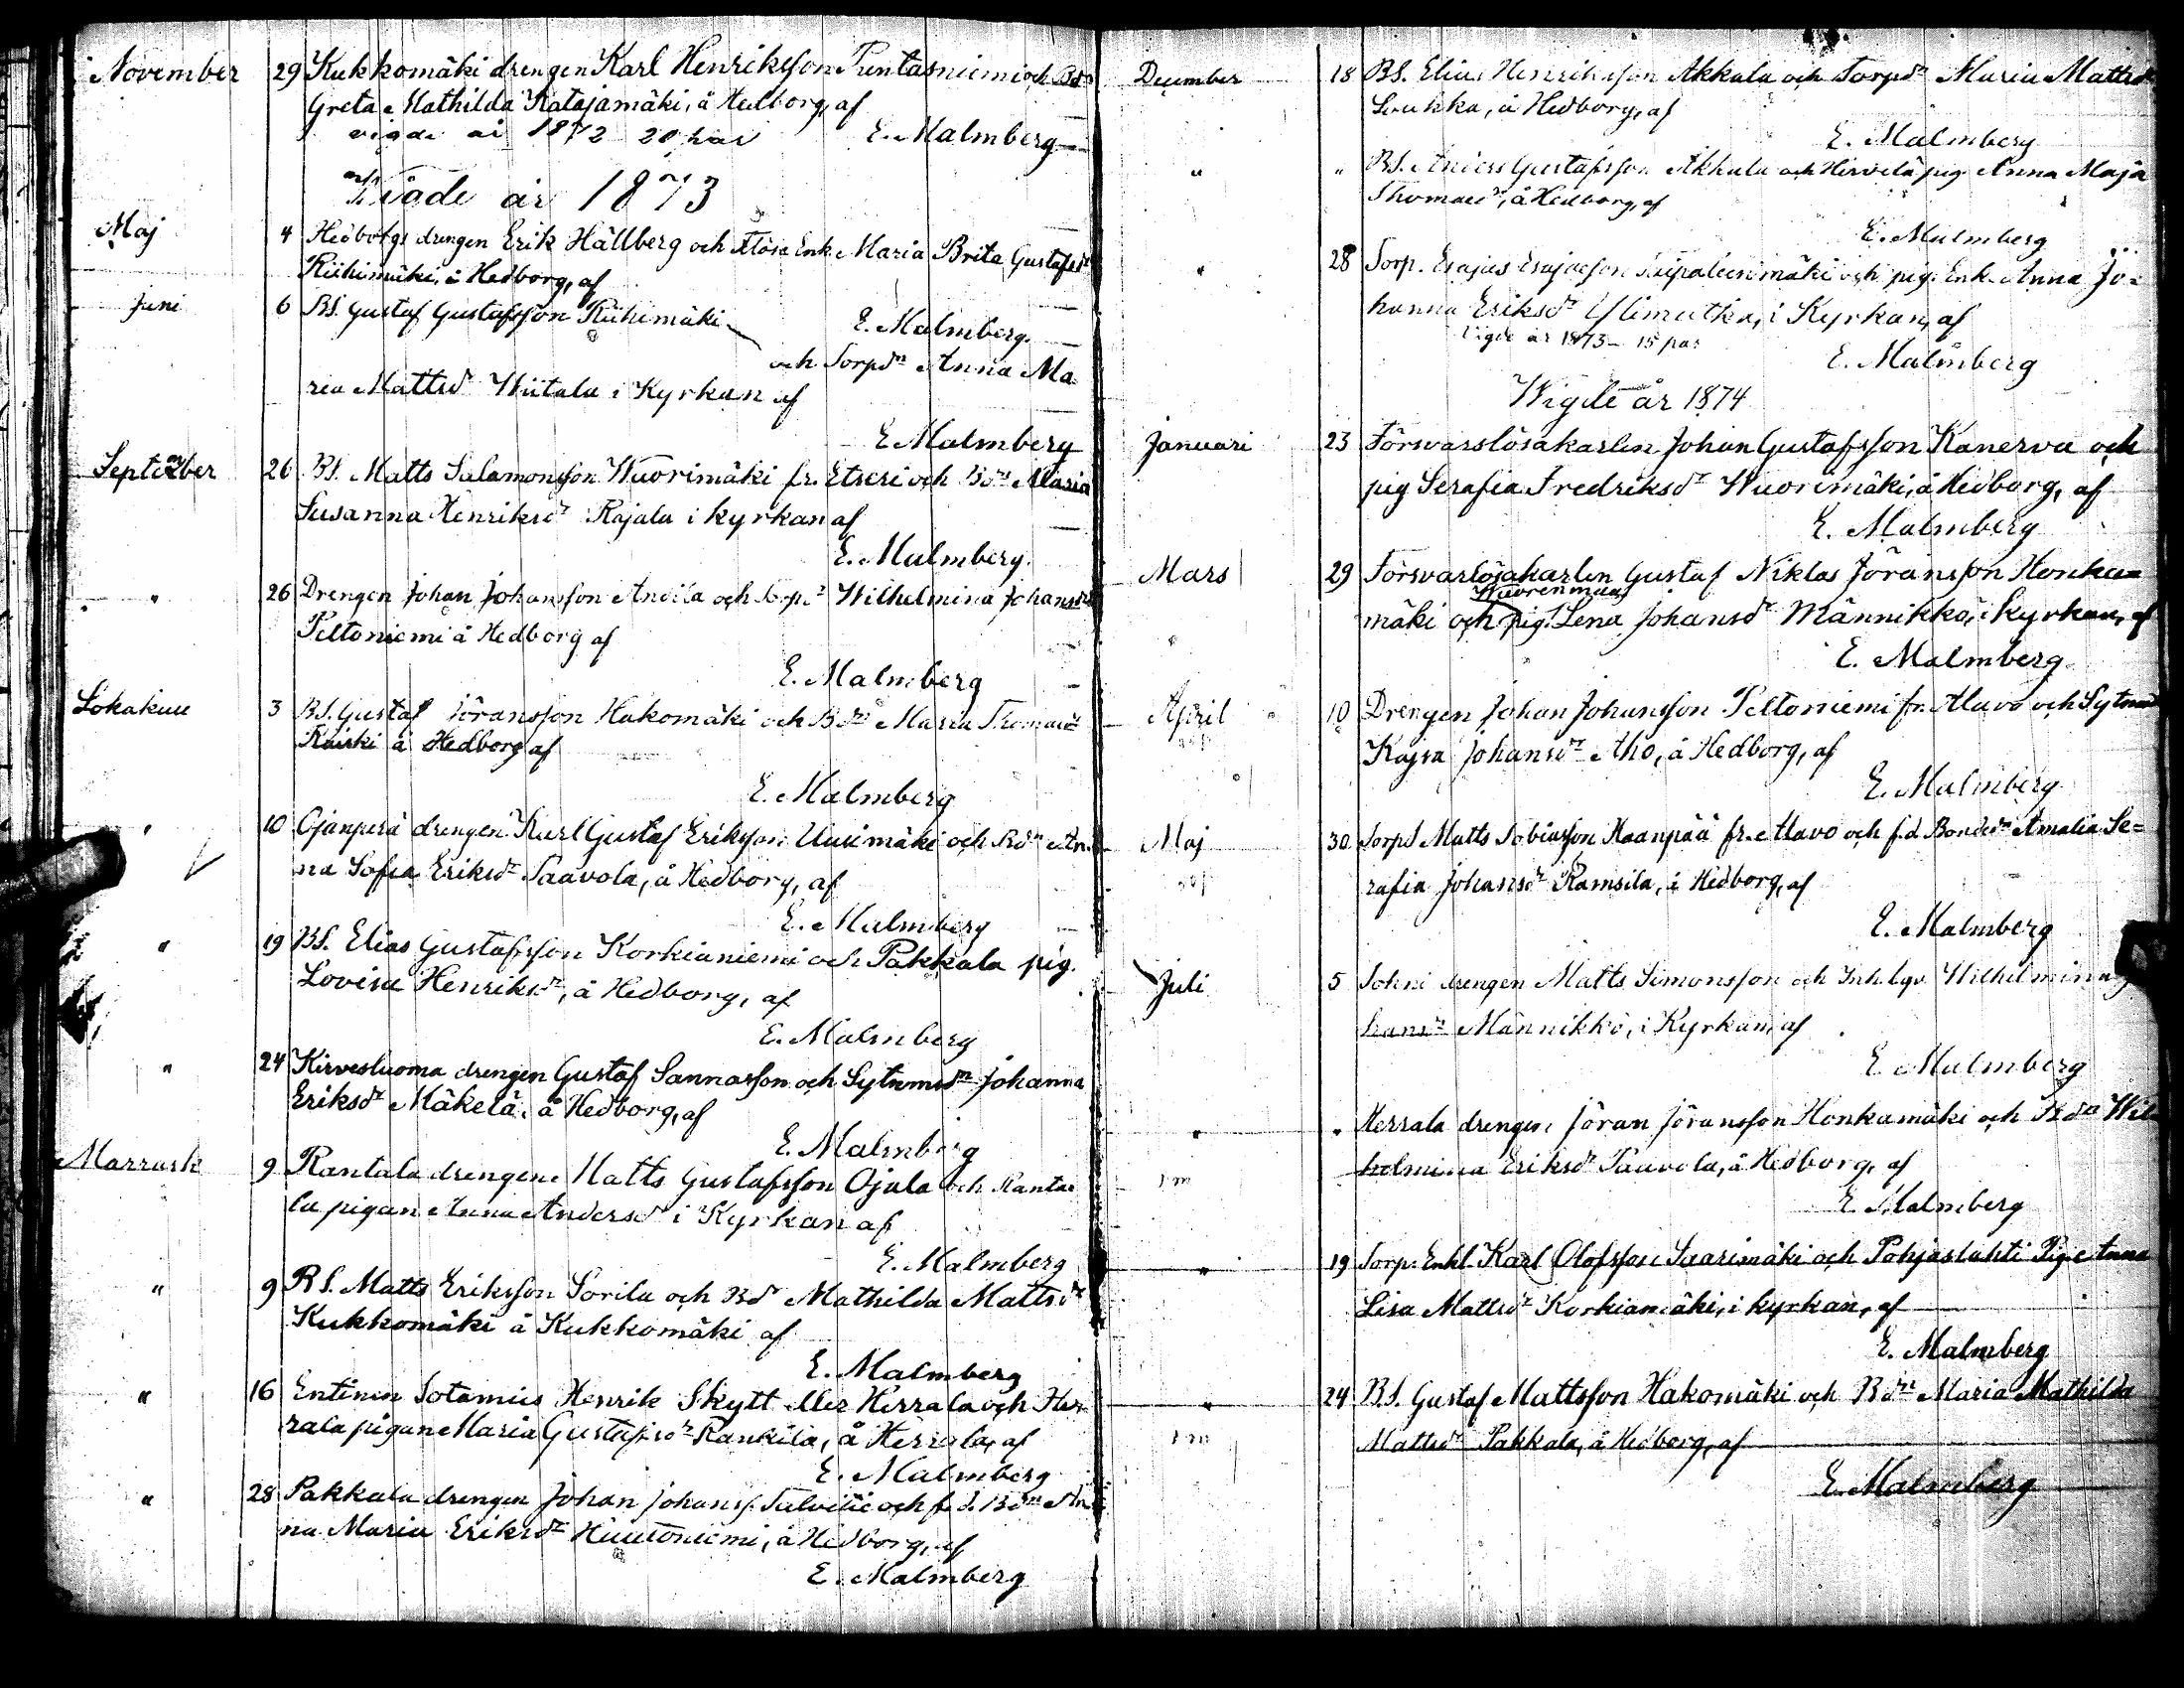 November 29 Kukkomäki drengen Karl Henriksson Puntasniemi och Bdn
Greta Mathilda Katajamäki, å Hedborg, af
vigde år 1872 20 par E. Malmberg
Wigde år 1873
Maj 4 Hedborgs drengen Erik Hällberg och Enk. Maria Brita Gustafsdr
Riihimäki, å Hedborg, af
Juni 6 BS. Gustaf Gustafsson Riihimäki E. Malmberg.
och Torpdn Anna Ma
ria Mattsdr Wiitala i Kyrkan af
E Malmberg
September 26 BS. Matts Salamonsson Wuorimäki fr. Etseri och Bdn Maria
Susanna Henriksdr Rajala i kyrkan af
E. Malmberg.
" 26 Drengen Johan Johansson Andila och Wilhelmina Johansdr
Peltoniemi å Hedborg af
E. Malmberg
Lokakuu 3 BS. Gustaf Jöransson Hakomäki och Bdn Maria Thomasdr
Kaiski å Hedborg af
E. Malmberg
" 10 Ojanperä drengen Karl Gustaf Eriksson Uusimäki och Bdn An
na Sofia Eriksdr Paavola, å Hedborg, af
E. Malmberg
" 19 BS. Elias Gustafsson Korkianiemi och Pakkala pig.
Lovisa Henriksdr, å Hedborg, af
E. Malmberg
" 24 Kirvesluoma drengen Gustaf Sannasson och Sytnmsdn Johanna
Eriksdr Mäkelä, å Hedborg, af
E. Malmberg
Marrask 9 Rantala drengen Matts Gustafsson Ojala och Ranta
la pigan Anna Andersdr i Kyrkan af
E. Malmberg
" 9 BS. Matts Eriksson Sorila och Bdr Mathilda Mattsdr
Kukkomäki å Kukkomäki af
E. Malmberg
" 16 Entinen Sotamies Henrik Skytt eller Herrala och Her
rala pigan Maria Gustafsdr Rankila, å Herrala, af
E. Malmberg
" 28 Pakkala drengen Johan Johanss. och f.d. Bdn An
na Maria Eriksdr Huutoniemi, å Hedborg, af
E. Malmberg
December 18 BS. Elias Henriksson Akkala och Torpdn Maria Mattsdr
Loukka, å Hedborg, af
E. Malmberg
" " BS. Anders Gustafsson Akkala och Hirvelä pig. Anna Maja
Thomasdr, å Hedborg, af
E. Malmberg
" 28 Torp. Esajas Esajasson och pig. Enk. Anna Jo=
hanna Eriksdr Ylimutka, i Kyrkan, af
Vigde år 1873 - 15 par
E. Malmberg
Wigde år 1874
Januari 23 Försvarslösakarlen Johan Gustafsson Kanerva och
pig Serafia Fredriksdr Wuorimäki, å Hedborg, af
E. Malmberg
Mars 29 Försvarlösakarlen Gustaf Niklas Jöransson Honka=
Wuorenmaa
mäki och pig. Lena Johansdr Männikkö, i Kyrkan, af
E. Malmberg
April 10 Drengen Johan Johansson Peltoniemi fr. Alavo och Sytnmsdr
Kajsa Johansdr Aho, å Hedborg, af
E. Malmberg
Maj 30 Torps Matts Tobiasson Haanpää fr. Alavo och f.d. Bondedn Amalia Se=
rafia Johansdr Ramsila, å Hedborg, af
E. Malmberg
Juli 5 Tohni drengen Matts Simonsson och Inh. Wilhelmina Jo
hansdr Männikkö, i Kyrkan, af
E. Malmberg
" " Herrala drengen Jöran Jöransson Honkamäki och Bdn Wil
helmina Eriksdr Paavola, å Hedborg, af
E. Malmberg
" 19 Torp. Enkl. Karl Olofsson Saarimäki och Pohjaslahti Pig. Anna
Lisa Mattsdr Korkiamäki, i kyrkan, af
E. Malmberg
" 24 BS. Gustaf Mattsson Hakomäki och Bdn Maria Mathilda
Mattsdr Pakkala, å Hedborg, af
E. Malmberg